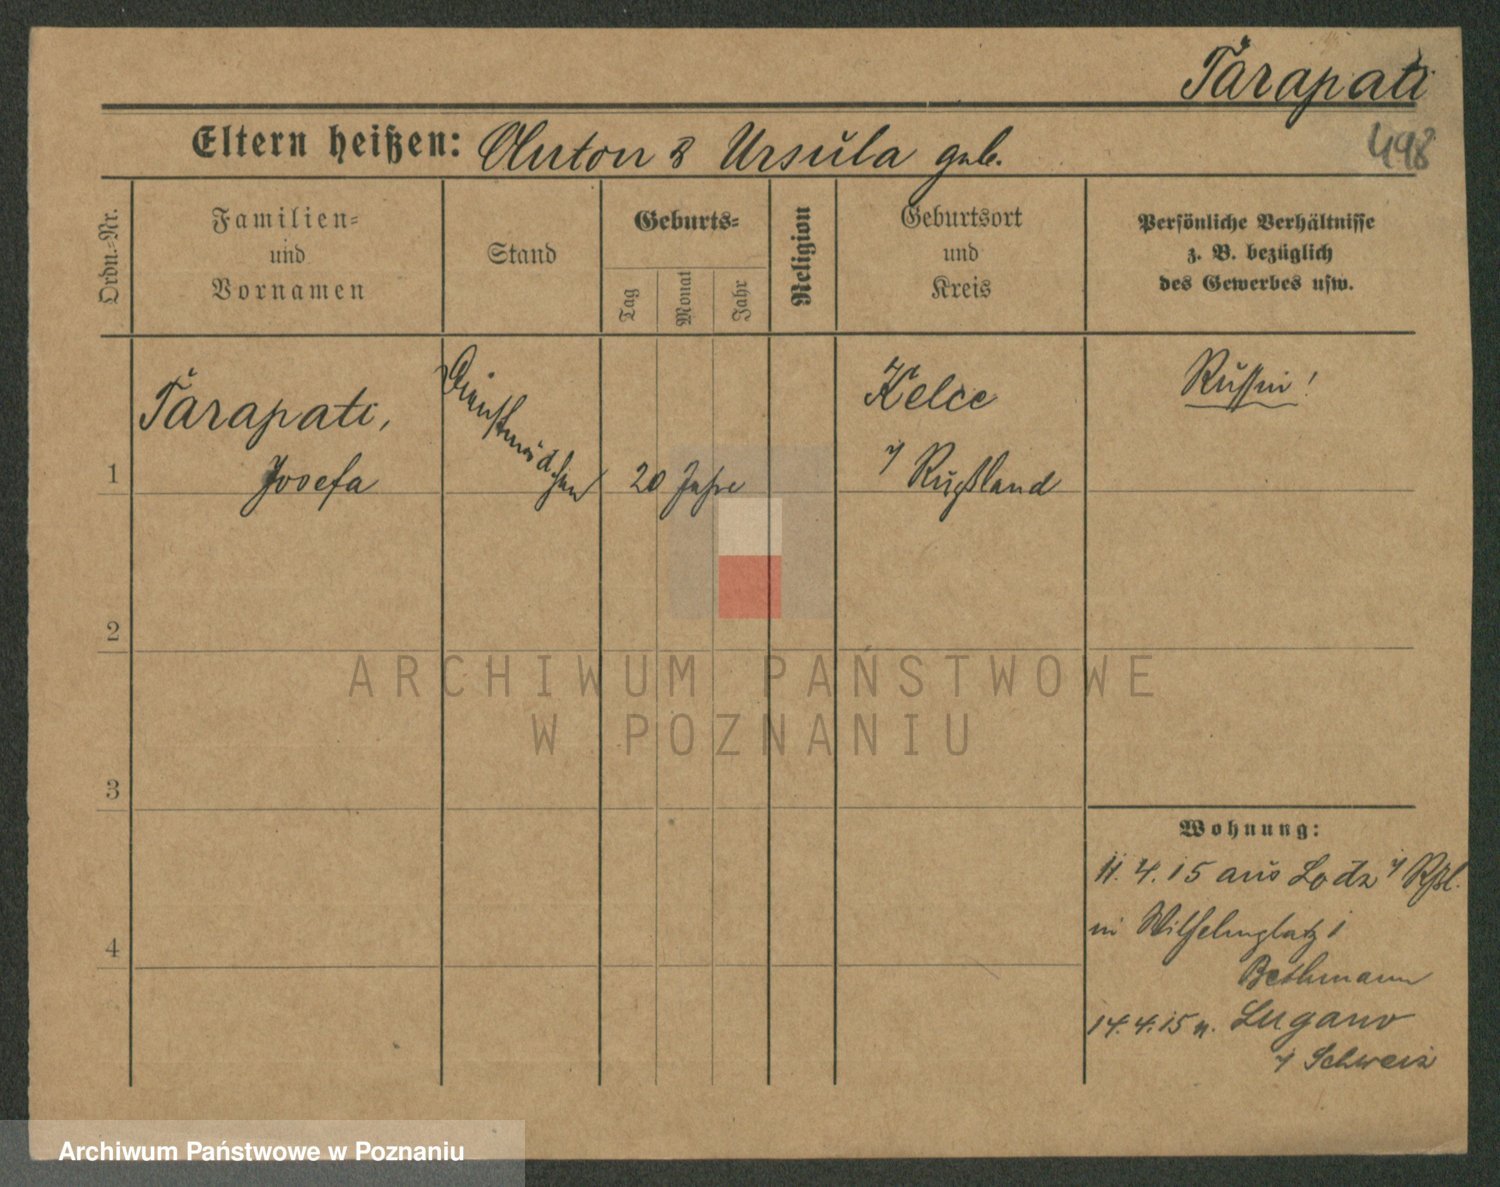 Tarapati
498
Eltern heißen: Anton & Ursula geb.
Ordn.-Nr.
Familien- und Vornamen
Stand
Geburts-
Tag
Monat
Jahr
Religion
Geburtsort und Kreis
Persönliche Verhältnisse
z. B. bezüglich
des Gewerbes usw.
1
Tarapati,
Josefa
Dienstmädchen
20 Jahre
Kelce
Rußland
Russin!
2
3
4
ARCHIWUM PAŃSTWOWE
W POZNANIU
Wohnung:
11. 4. 15 aus Lodz Rßl.
in Wilhelmplatz 1
Bethmann
14. 4. 15 n. Lugano
Schweiz
Archiwum Państwowe w Poznaniu